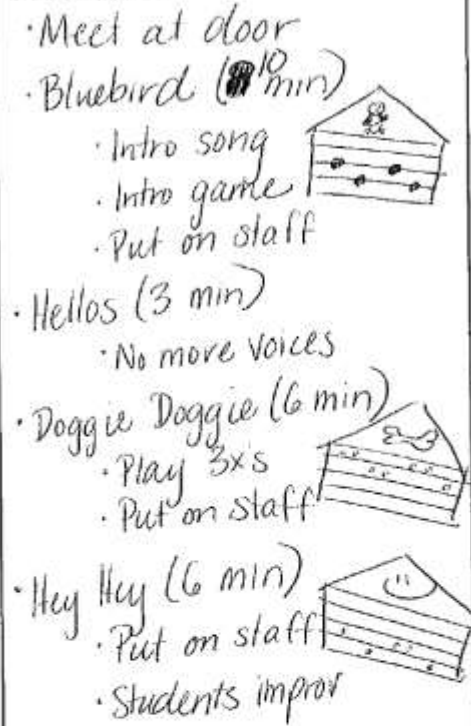 · Meet at door
· Bluebird (10 min)
· Intro song
· Intro game
· Put on staff
· Hellos (3 min)
· No more voices
· Doggie Doggie (6 min)
· Play 3x's
· Put on staff
· Hey Hey (6 min)
· Put on staff
· Students improv